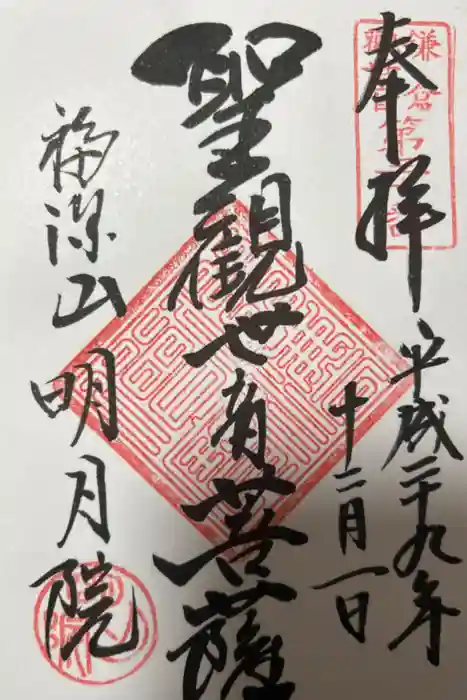 奉拝
平成二十九年
十二月一日
聖観世音菩薩
福源山
明月院
鎌倉第